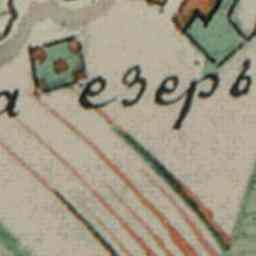 а езеръ